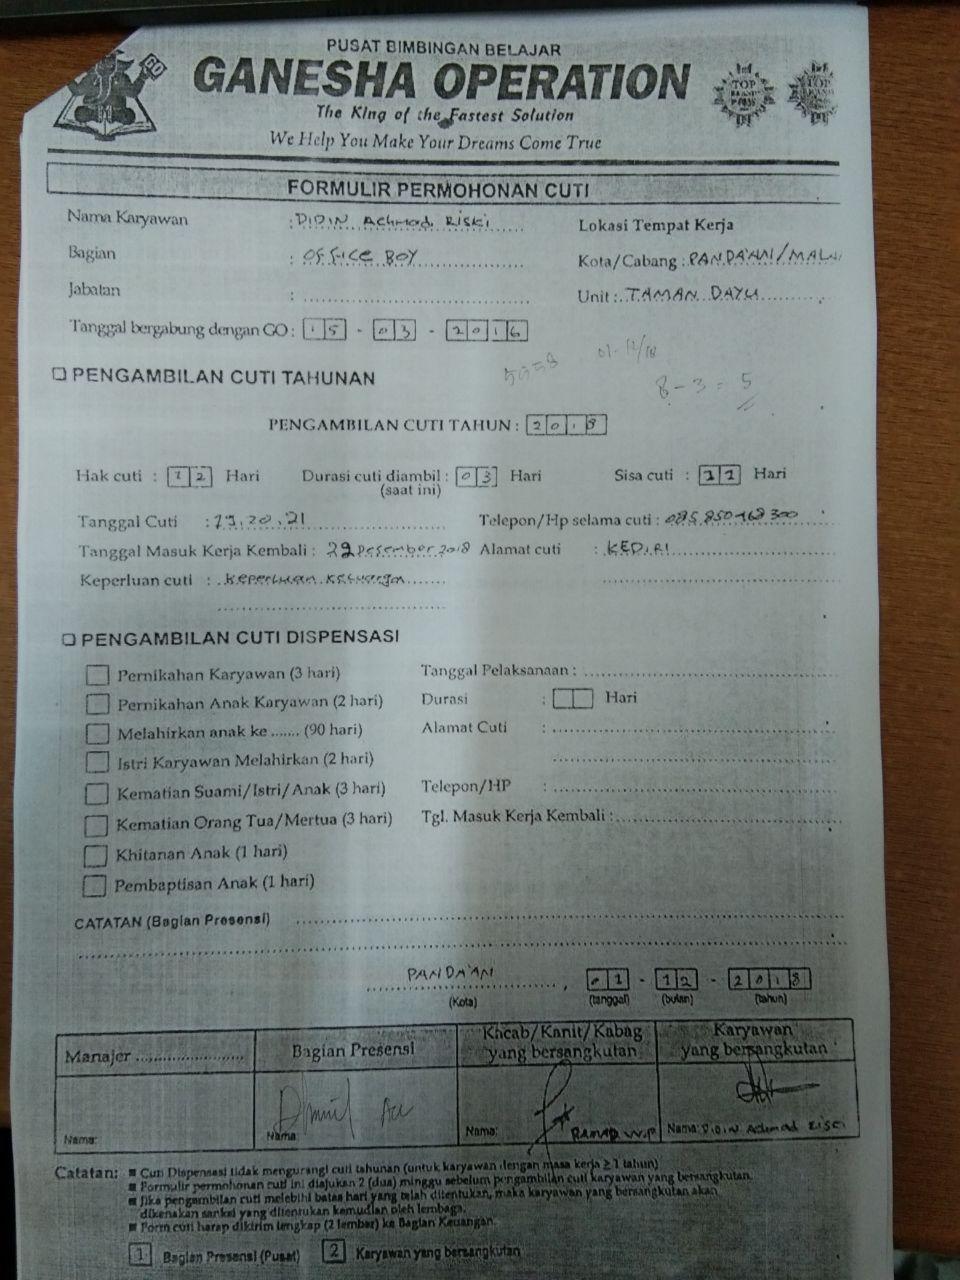 PUSAT BIMBINGAN BELAJAR
GANESHA OPERATION
The King of the Fastest Solution
We Help You Make Your Dreams Come True
GO
TOP
TOP
FORMULIR PERMOHONAN CUTI
Nama Karyawan : DIDIN Achmad Riski
Lokasi Tempat Kerja
Bagian : OFFICE BOY
Kota/Cabang : PANDA'AN/MALA
Jabatan :
Unit : TAMAN DAYU
Tanggal bergabung dengan GO : 15 - 03 - 2016
01-12/18
8 - 3 = 5
❑ PENGAMBILAN CUTI TAHUNAN
PENGAMBILAN CUTI TAHUN : 2018
Hak cuti : 12 Hari Durasi cuti diambil : 03 Hari Sisa cuti : 11 Hari
(saat ini)
Tanggal Cuti : 19, 20, 21 Telepon/Hp selama cuti :
Tanggal Masuk Kerja Kembali : 22 Desember 2018 Alamat cuti : KEDIRI
Keperluan cuti : Keperluan Keluarga
❑ PENGAMBILAN CUTI DISPENSASI
Pernikahan Karyawan (3 hari) Tanggal Pelaksanaan :
Pernikahan Anak Karyawan (2 hari) Durasi : Hari
Melahirkan anak ke ....... (90 hari) Alamat Cuti :
Istri Karyawan Melahirkan (2 hari)
Kematian Suami/Istri/Anak (3 hari) Telepon/HP :
Kematian Orang Tua/Mertua (3 hari) Tgl. Masuk Kerja Kembali :
Khitanan Anak (1 hari)
Pembaptisan Anak (1 hari)
CATATAN (Bagian Presensi)
PANDA'AN, 01 - 12 - 2018
(Kota) (tanggal) (bulan) (tahun)
Manajer ...................... Bagian Presensi Kacab/Kanit/Kabag yang bersangkutan Karyawan yang bersangkutan
Nama: Nama: Nama: W.P Nama: DIDIN Achmad Riski
Catatan: ■ Cuti Dispensasi tidak mengurangi cuti tahunan (untuk karyawan dengan masa kerja ≥ 1 tahun)
■ Formulir permohonan cuti ini diajukan 2 (dua) minggu sebelum pengambilan cuti karyawan yang bersangkutan.
■ Jika pengambilan cuti melebihi batas hari yang telah ditentukan, maka karyawan yang bersangkutan akan
dikenakan sanksi yang ditentukan kemudian oleh lembaga.
■ Form cuti harap dikirim lengkap (2 lembar) ke Bagian Keuangan.
1 Bagian Presensi (Pusat) 2 Karyawan yang bersangkutan